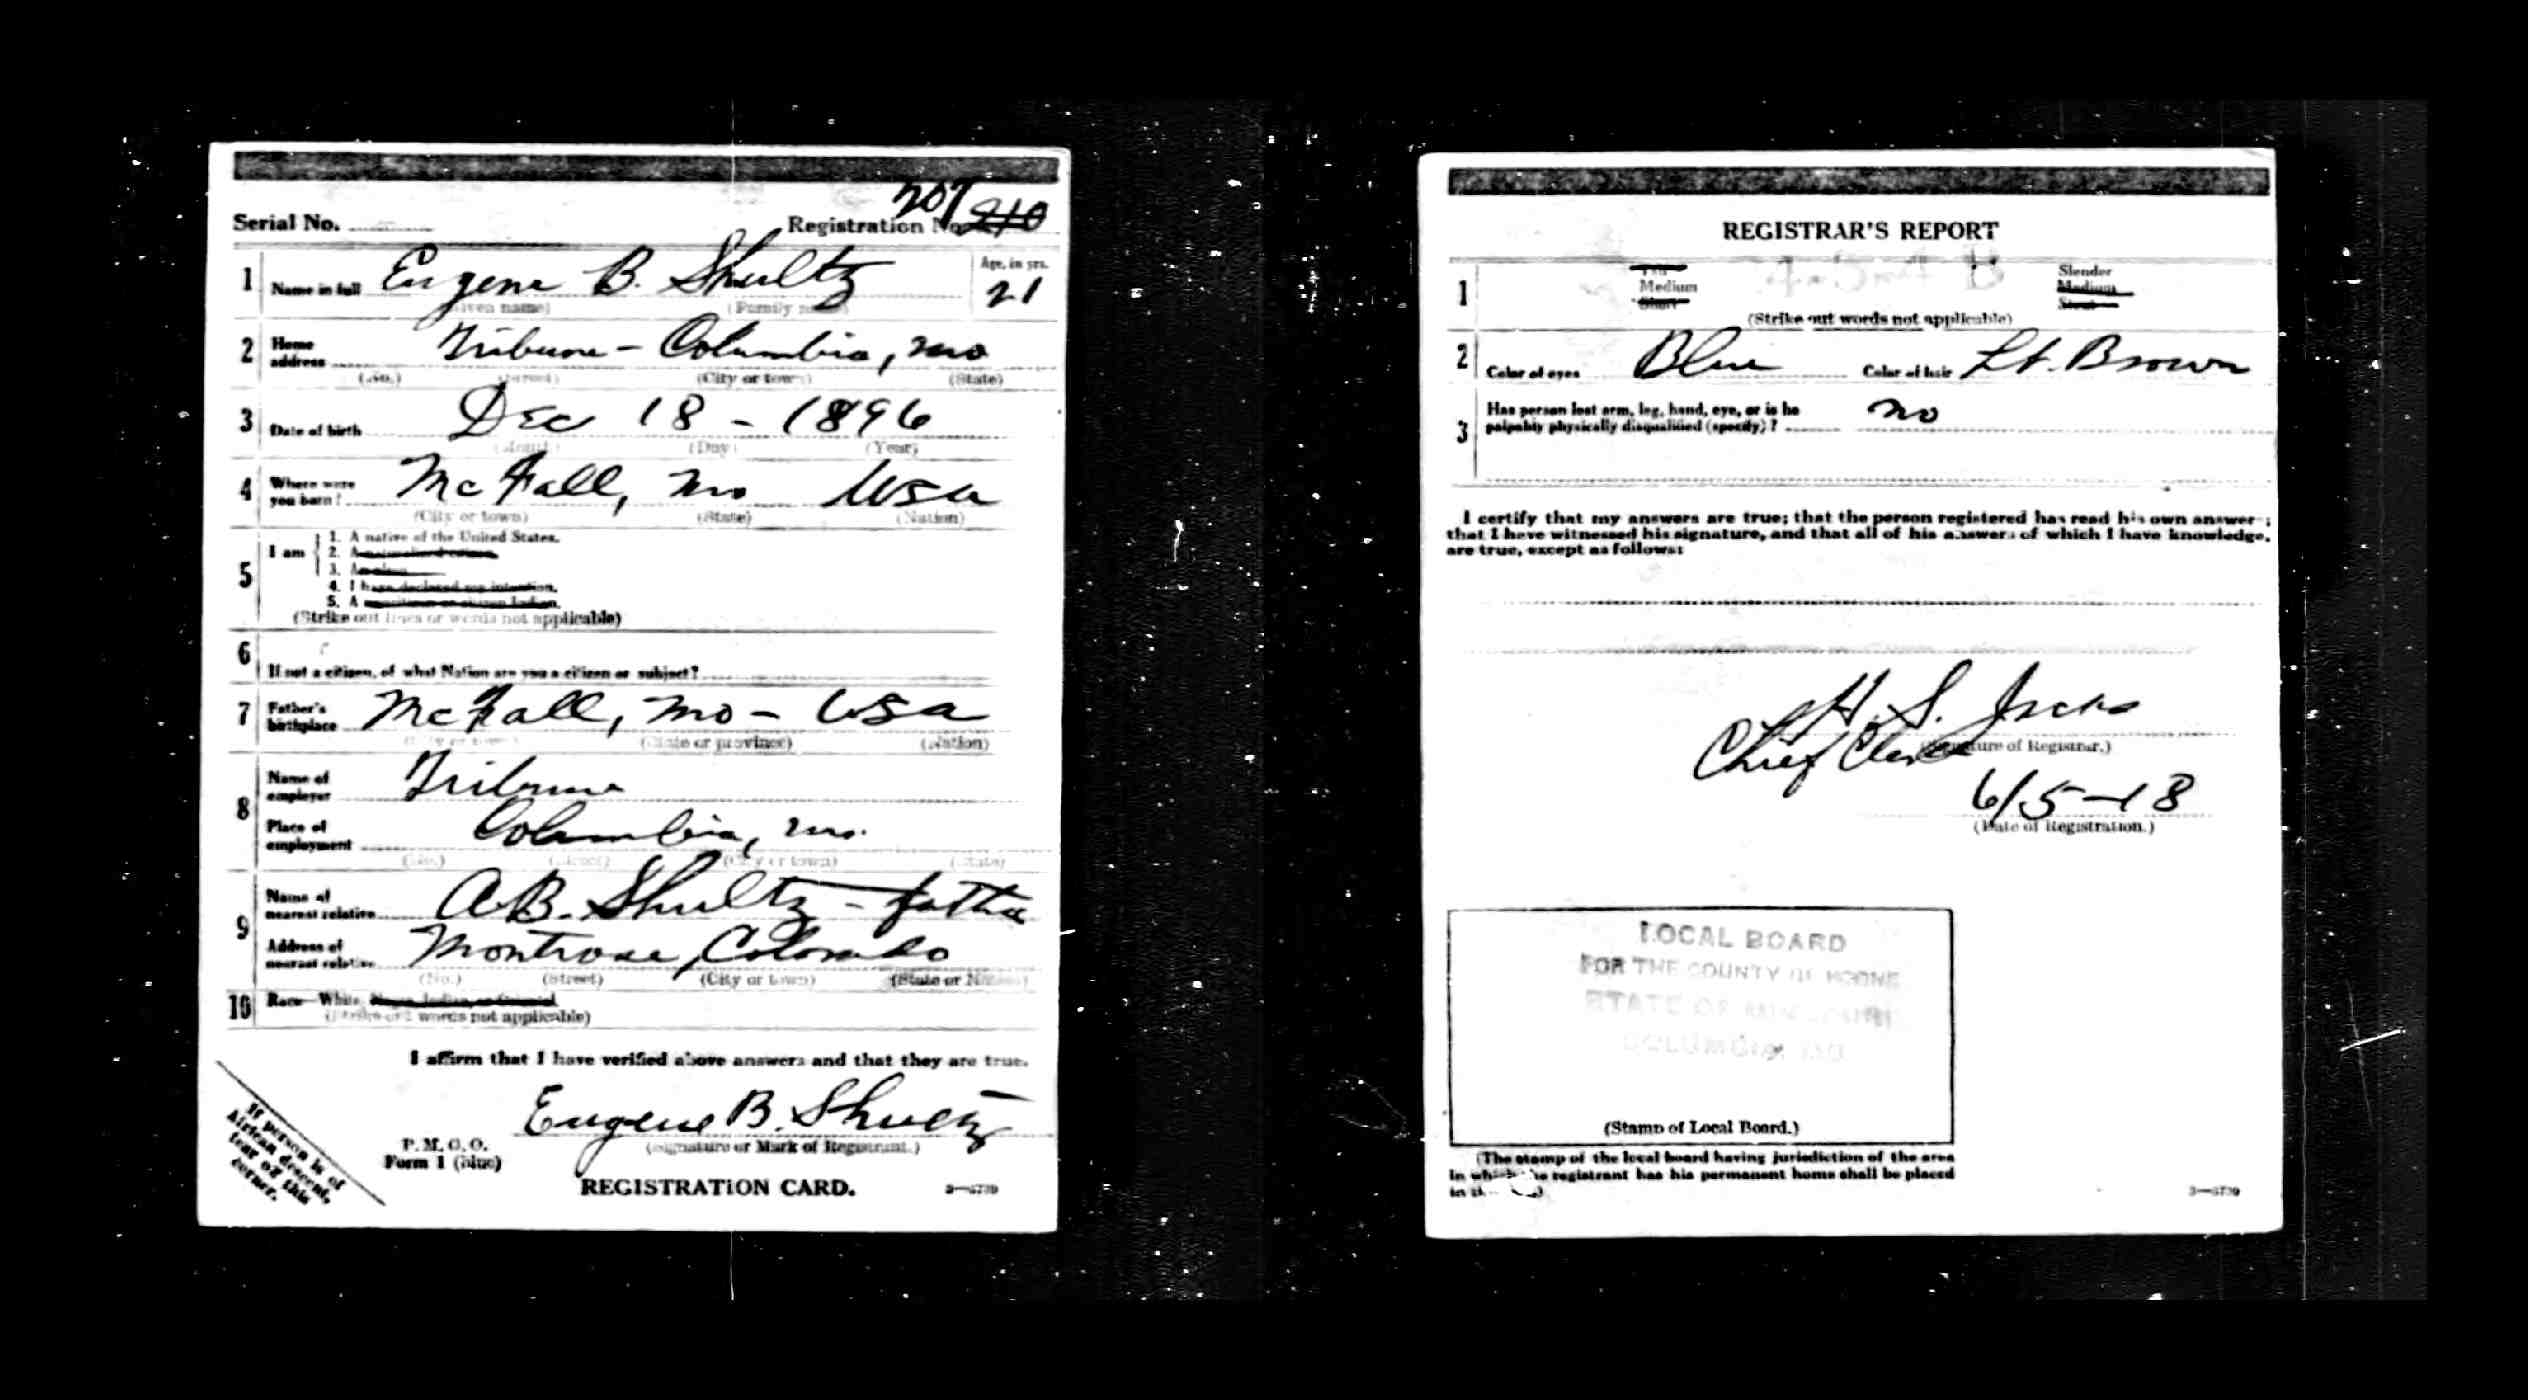 207
Serial No. Registration No. 210
1 Name in full Eugene B. Shultz Age, in yrs. 21
(Given name) (Family name)
2 Home address Tribune - Columbia, Mo
(No.) (Street) (City or town) (State)
3 Date of birth Dec 18 - 1896
(Month) (Day) (Year)
4 Where were you born? McFall, Mo USA
(City or town) (State) (Nation)
5 I am 1. A native of the United States.
2. A naturalized citizen.
3. An alien
4. I have declared my intention.
5. A noncitizen or citizen Indian.
(Strike out lines or words not applicable)
6 If not a citizen, of what Nation are you a citizen or subject?
7 Father's birthplace McFall, Mo - USA
(City or town) (State or province) (Nation)
8 Name of employer Tribune
Place of employment Columbia, Mo.
(No.) (Street) (City or town) (State)
9 Name of nearest relative A.B. Shultz - father
Address of nearest relative Montrose, Colorado
(No.) (Street) (City or town) (State or Nation)
10 Race—White, Negro, Indian, or Oriental
(Strike out words not applicable)
I affirm that I have verified above answers and that they are true.
Eugene B. Shultz
(Signature or Mark of Registrant.)
P. M. G. O.
Form 1 (blue)
REGISTRATION CARD.
If person is of
African descent,
tear off this
corner.
REGISTRAR'S REPORT
1 Tall Slender
Medium Medium
Short Stout
(Strike out words not applicable)
2 Color of eyes Blue Color of hair Lt. Brown
3 Has person lost arm, leg, hand, eye, or is he
palpably physically disqualified (specify)? no
I certify that my answers are true; that the person registered has read his own answers;
that I have witnessed his signature, and that all of his answers of which I have knowledge,
are true, except as follows:
H. S. Jacks
(Signature of Registrar.)
Chief Clerk
6/5-18
(Date of Registration.)
LOCAL BOARD
FOR THE COUNTY OF BOONE
STATE OF MISSOURI
COLUMBIA, MO
(Stamp of Local Board.)
(The stamp of the local board having jurisdiction of the area
in which the registrant has his permanent home shall be placed
in